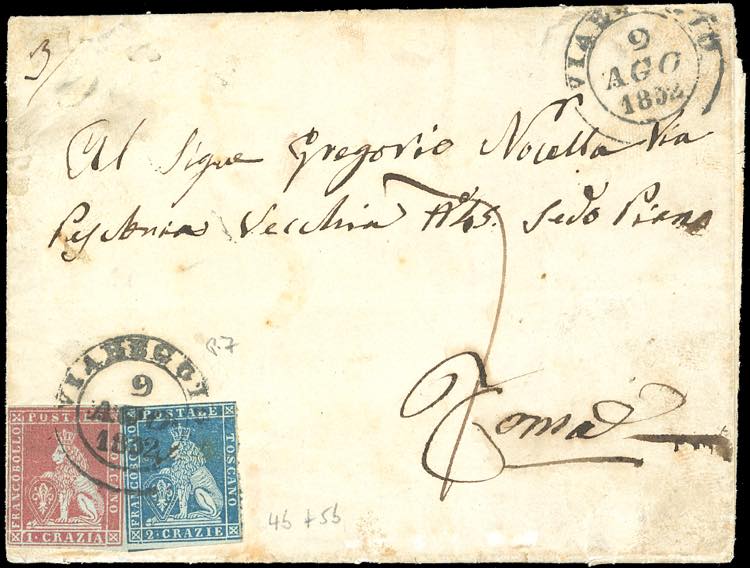 3/
VIAREGGIO
9
AGO
1852
Al Sigre Gregorio Nocella Via
Vecchia N° 45. Sedo Piano
7
Roma
VIAREGGI
9
AGO
1852
P.7
POST
FRANCOBOLLO
1·CRAZIA
POSTALE
FRANCOBOLLO
TOSCANO
2·CRAZIE
4b + 5b